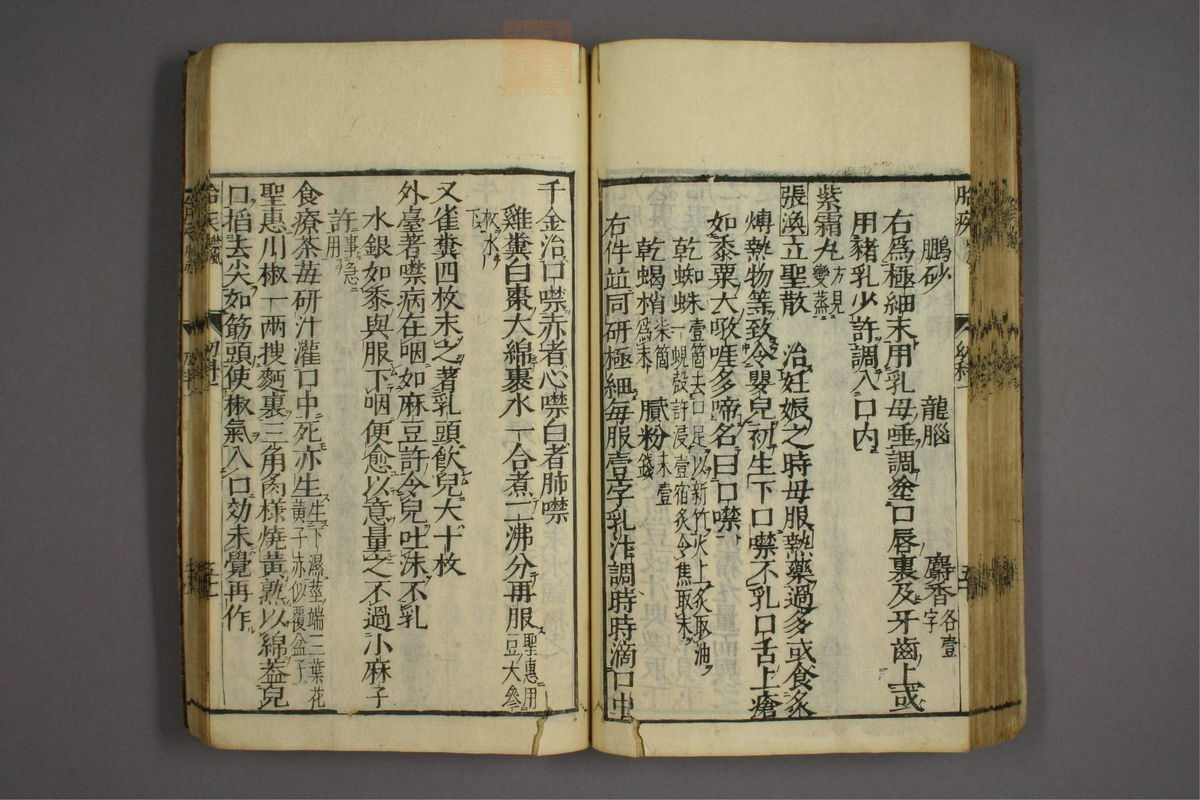 鵬砂　龍腦　麝香各壹字
右爲極細末用乳母唾調塗口唇裏及牙齒上或
用豬乳少許調入口内
紫霜丸方見變蒸
張渙立聖散　治妊娠之時母服熱藥過多或食炙
煿熱物等致令嬰兒初生下口噤不乳口舌上瘡
如黍粟大呝啀多啼名曰口噤
乾蜘蛛壹箇去口足以新竹火上炙取油一蜆殼許浸壹宿炙令焦取末
乾蝎梢柒箇爲末　膩粉末壹錢
右件並同研極細毎服壹字乳汁調時時滴口中
千金治口噤赤者心噤白者肺噤
雞糞白棗大綿裹水一合煮二沸分再服聖惠用豆大參枚水下
又雀糞四枚末之著乳頭飲兒大十枚
外臺著噤病在咽如麻豆許令兒吐沫不乳
水銀如黍與服下咽便愈以意量之不過小麻子
許事急用
食療茶苺研汁灌口中死亦生生下濕莖端二葉花黃子赤似覆盆子
聖惠川椒一兩搜麪裹三角肉樣燒黃熟以綿蓋兒
口掐去尖如筯頭使椒氣入口効未覺再作